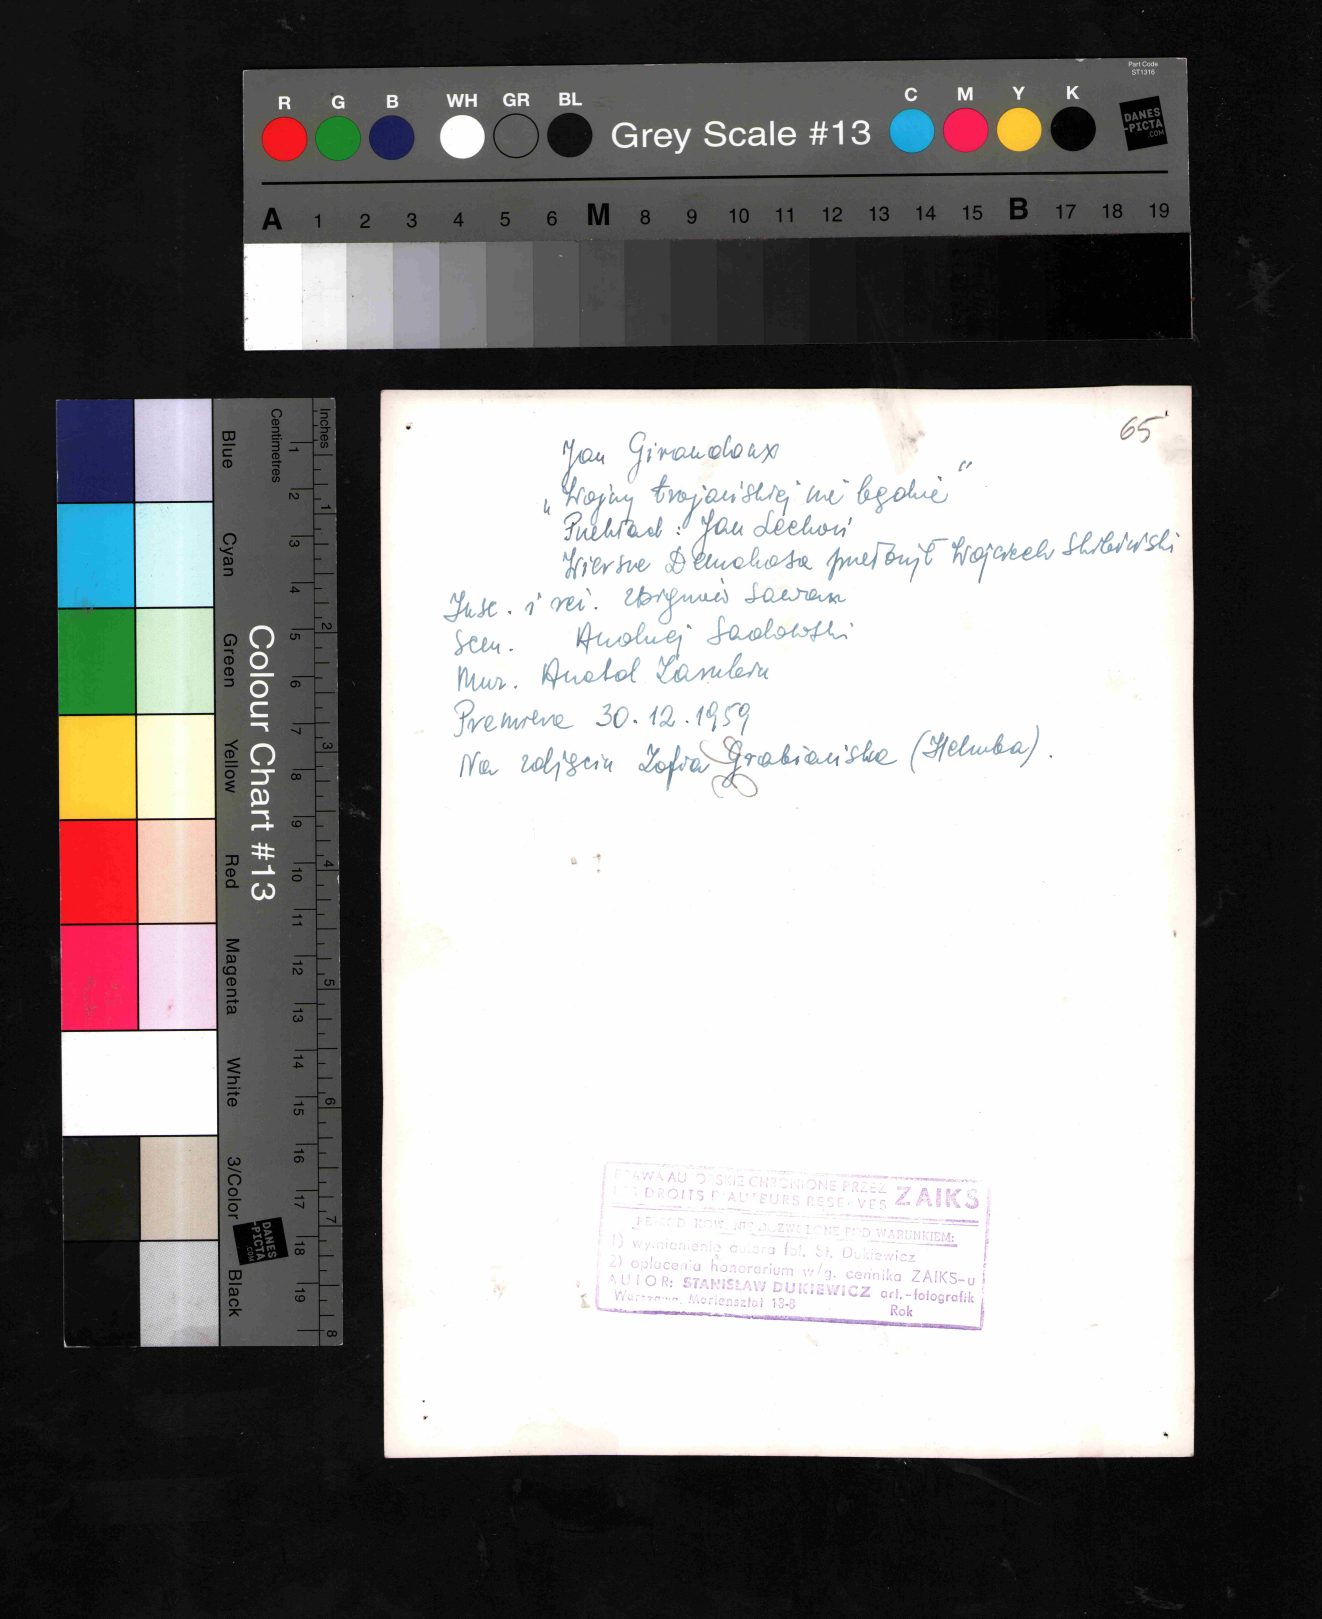 Part Code
ST1316
R G B WH GR BL
Grey Scale #13
C M Y K
DANES
-PICTA
.COM
A 1 2 3 4 5 6 M 8 9 10 11 12 13 14 15 B 17 18 19
Colour Chart #13
Blue
Cyan
Green
Yellow
Red
Magenta
White
3/Color
Black
Centimetres
1 2 3 4 5 6 7 8 9 10 11 12 13 14 15 16 17 18 19
Inches
1 2 3 4 5 6 7 8
DANES
-PICTA
.COM
65
Jan Giraudoux
„Wojny trojańskiej nie będzie"
Przekład: Jan Lechoń
Wiersze Demokosa przełożył Wojciech
Insc. i reż. Zbigniew Sawan
Scen. Andrzej Sadowski
Muz. Anatol Zarubin
Premiera 30.12.1959
Na zdjęciu Zofia Grabiańska (Hekuba).
PRAWA AUTORSKIE CHRONIONE PRZEZ ZAIKS
LES DROITS D'AUTEURS RESERVES
NIEDOZWOLONE POD WARUNKIEM:
1) wymienienie autora fot. St. Dukiewicz
2) opłacenia honorarium w/g. cennika ZAIKS-u
AUTOR: STANISŁAW DUKIEWICZ art.-fotografik
Warszawa, Mariensztat 13-8 Rok